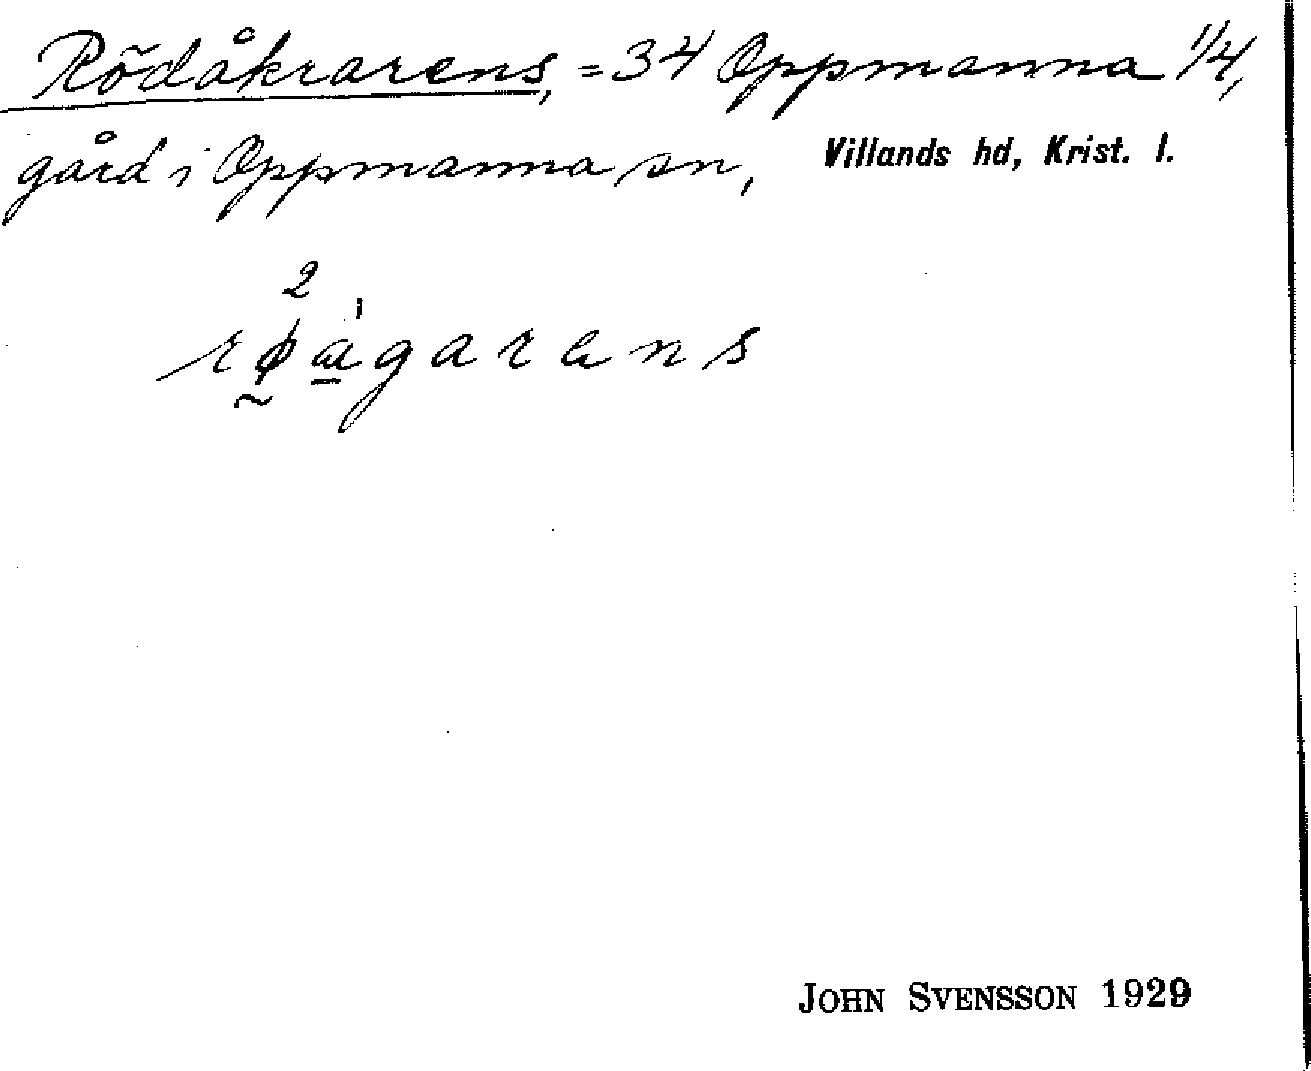 Rödåkrarens, = 34 Oppmanna 1/4,
gård i Oppmanna sn, Villands hd, Krist. l.
JOHN SVENSSON 1929